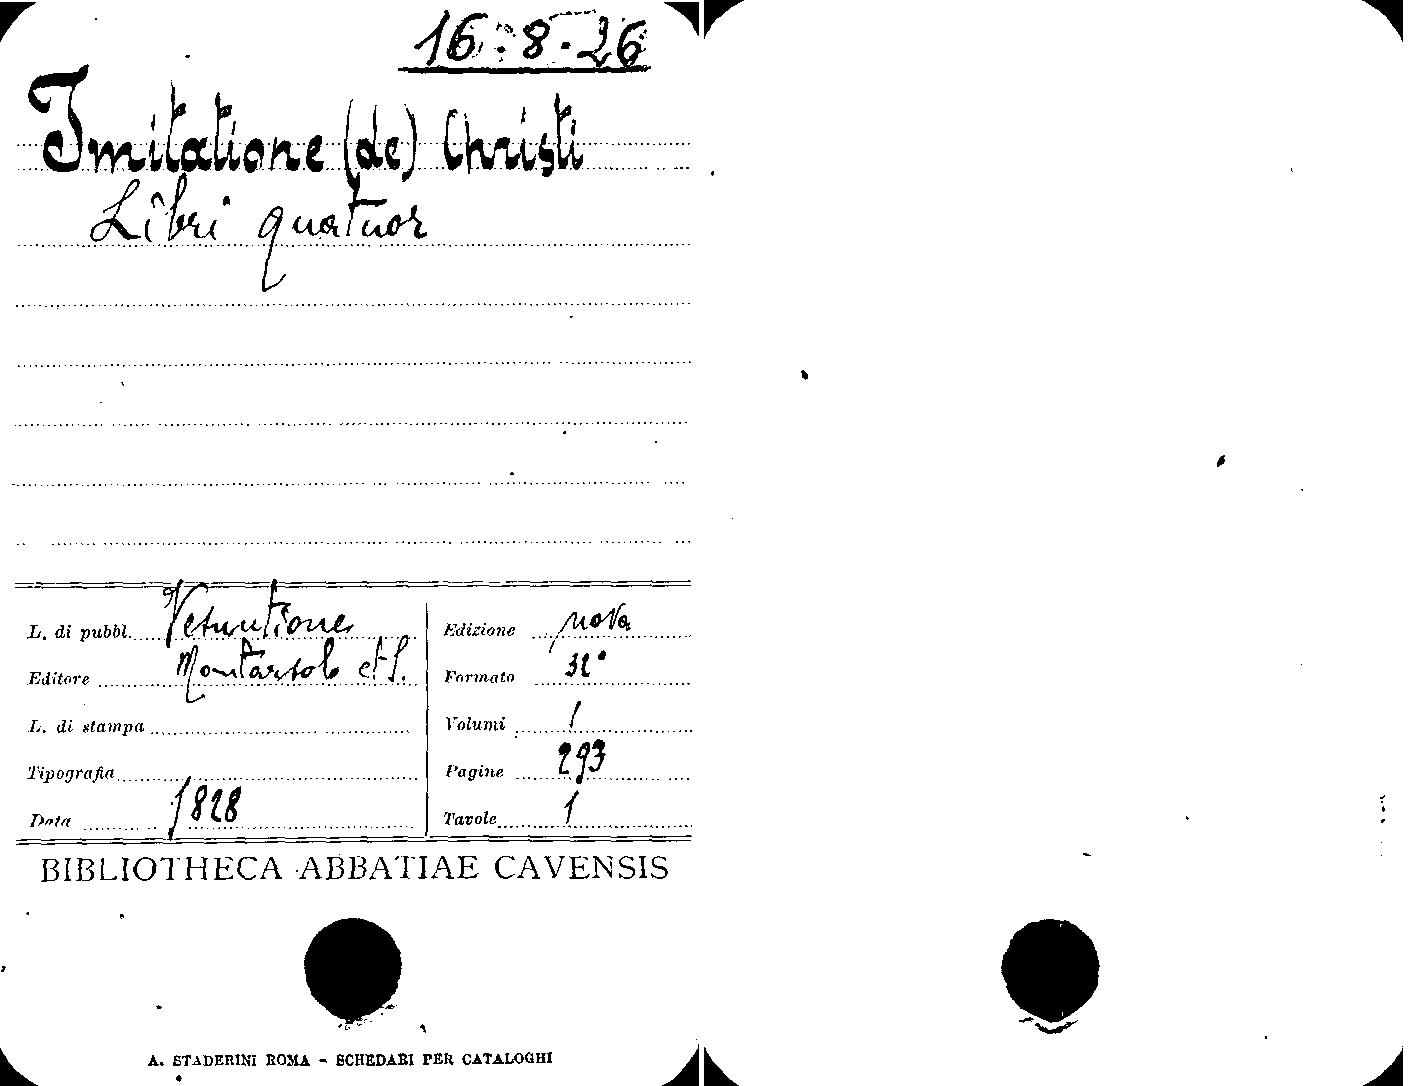 16.8.26
Imitatione (de) Christi
Libri quatuor
L. di pubbl. Vesuntione
Editore Montarsolo et S.
L. di stampa
Tipografia
Data 1828
Edizione nova
Formato 32°
Volumi 1
Pagine 293
Tavole 1
BIBLIOTHECA ABBATIAE CAVENSIS
A. STADERINI ROMA - SCHEDARI PER CATALOGHI